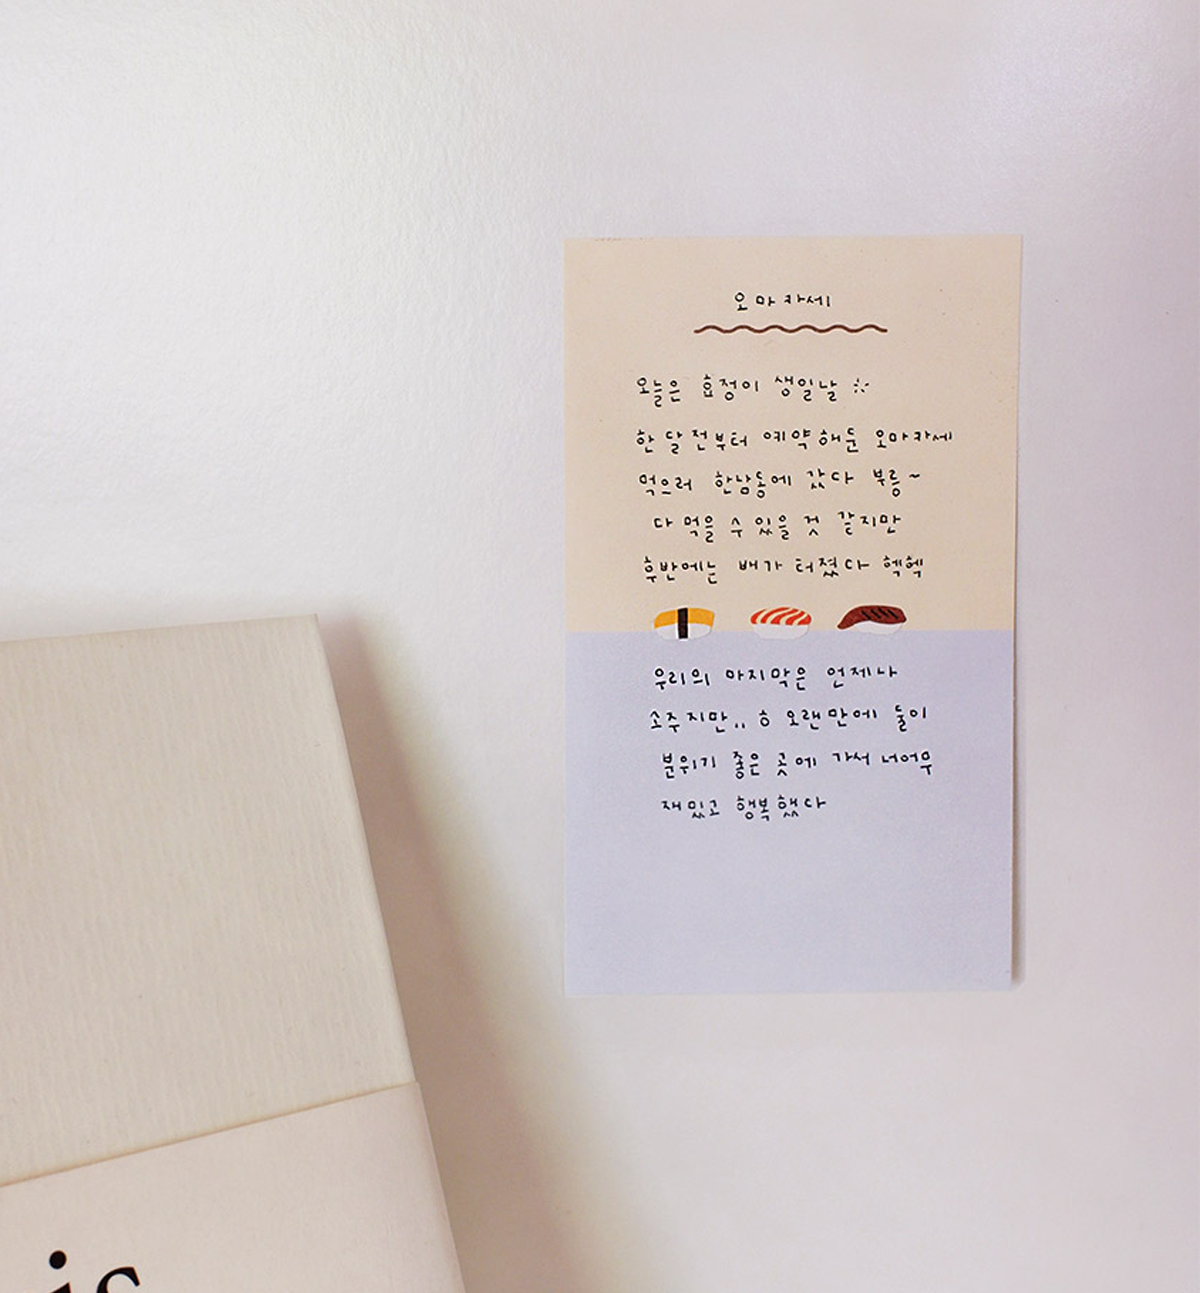 오마카세
오늘은 효정이 생일날
한달전부터 예약해둔 오마카세
먹으러 한남동에 갔다 부릉~
다 먹을 수 있을 것 같지만
후반에는 배가 터졌다 헥헥
우리의 마지막은 언제나
소주지만.. 흥 오랜만에 둘이
분위기 좋은 곳에 가서 너어무
재밌고 행복했다
is